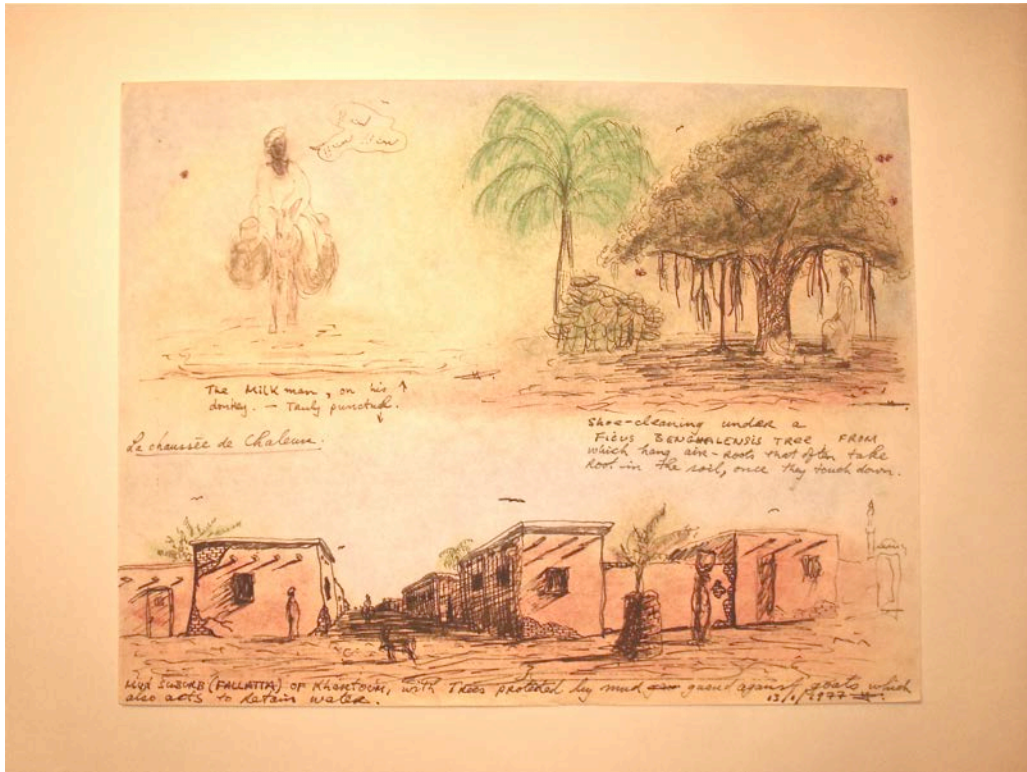 The Milk man, on his
donkey. — Truly punctual.
La chaussée de Chaleur.
Shoe-cleaning under a
FICUS BENGHALENSIS TREE FROM
which hang air-roots that often take
Root in the soil, once they touch down.
SUBURB (FALLATTA) OF KHARTOUM, with Trees protected by mud guard against goats which
also acts to retain water.
1977